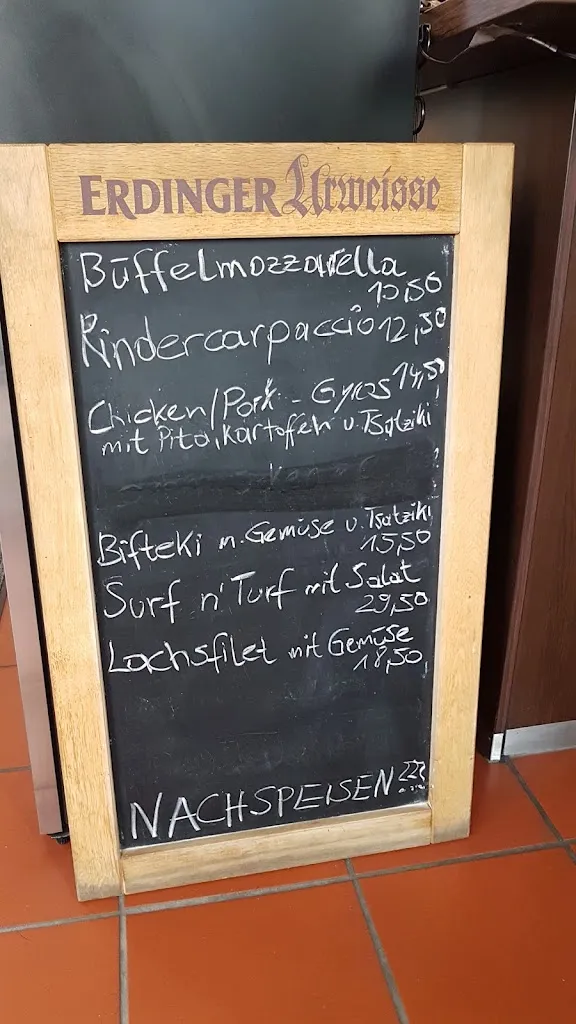 ERDINGER Urweisse
Büffelmozzarella
10,50
Rindercarpaccio 12,50
Chicken/Pork - Gyros 14,50
mit Pita, Kartoffeln u. Tsatziki
Bifteki m. Gemüse u. Tsatziki
15,50
Surf n' Turf mit Salat
29,50
Lachsfilet mit Gemüse
18,50
NACHSPEISEN ???